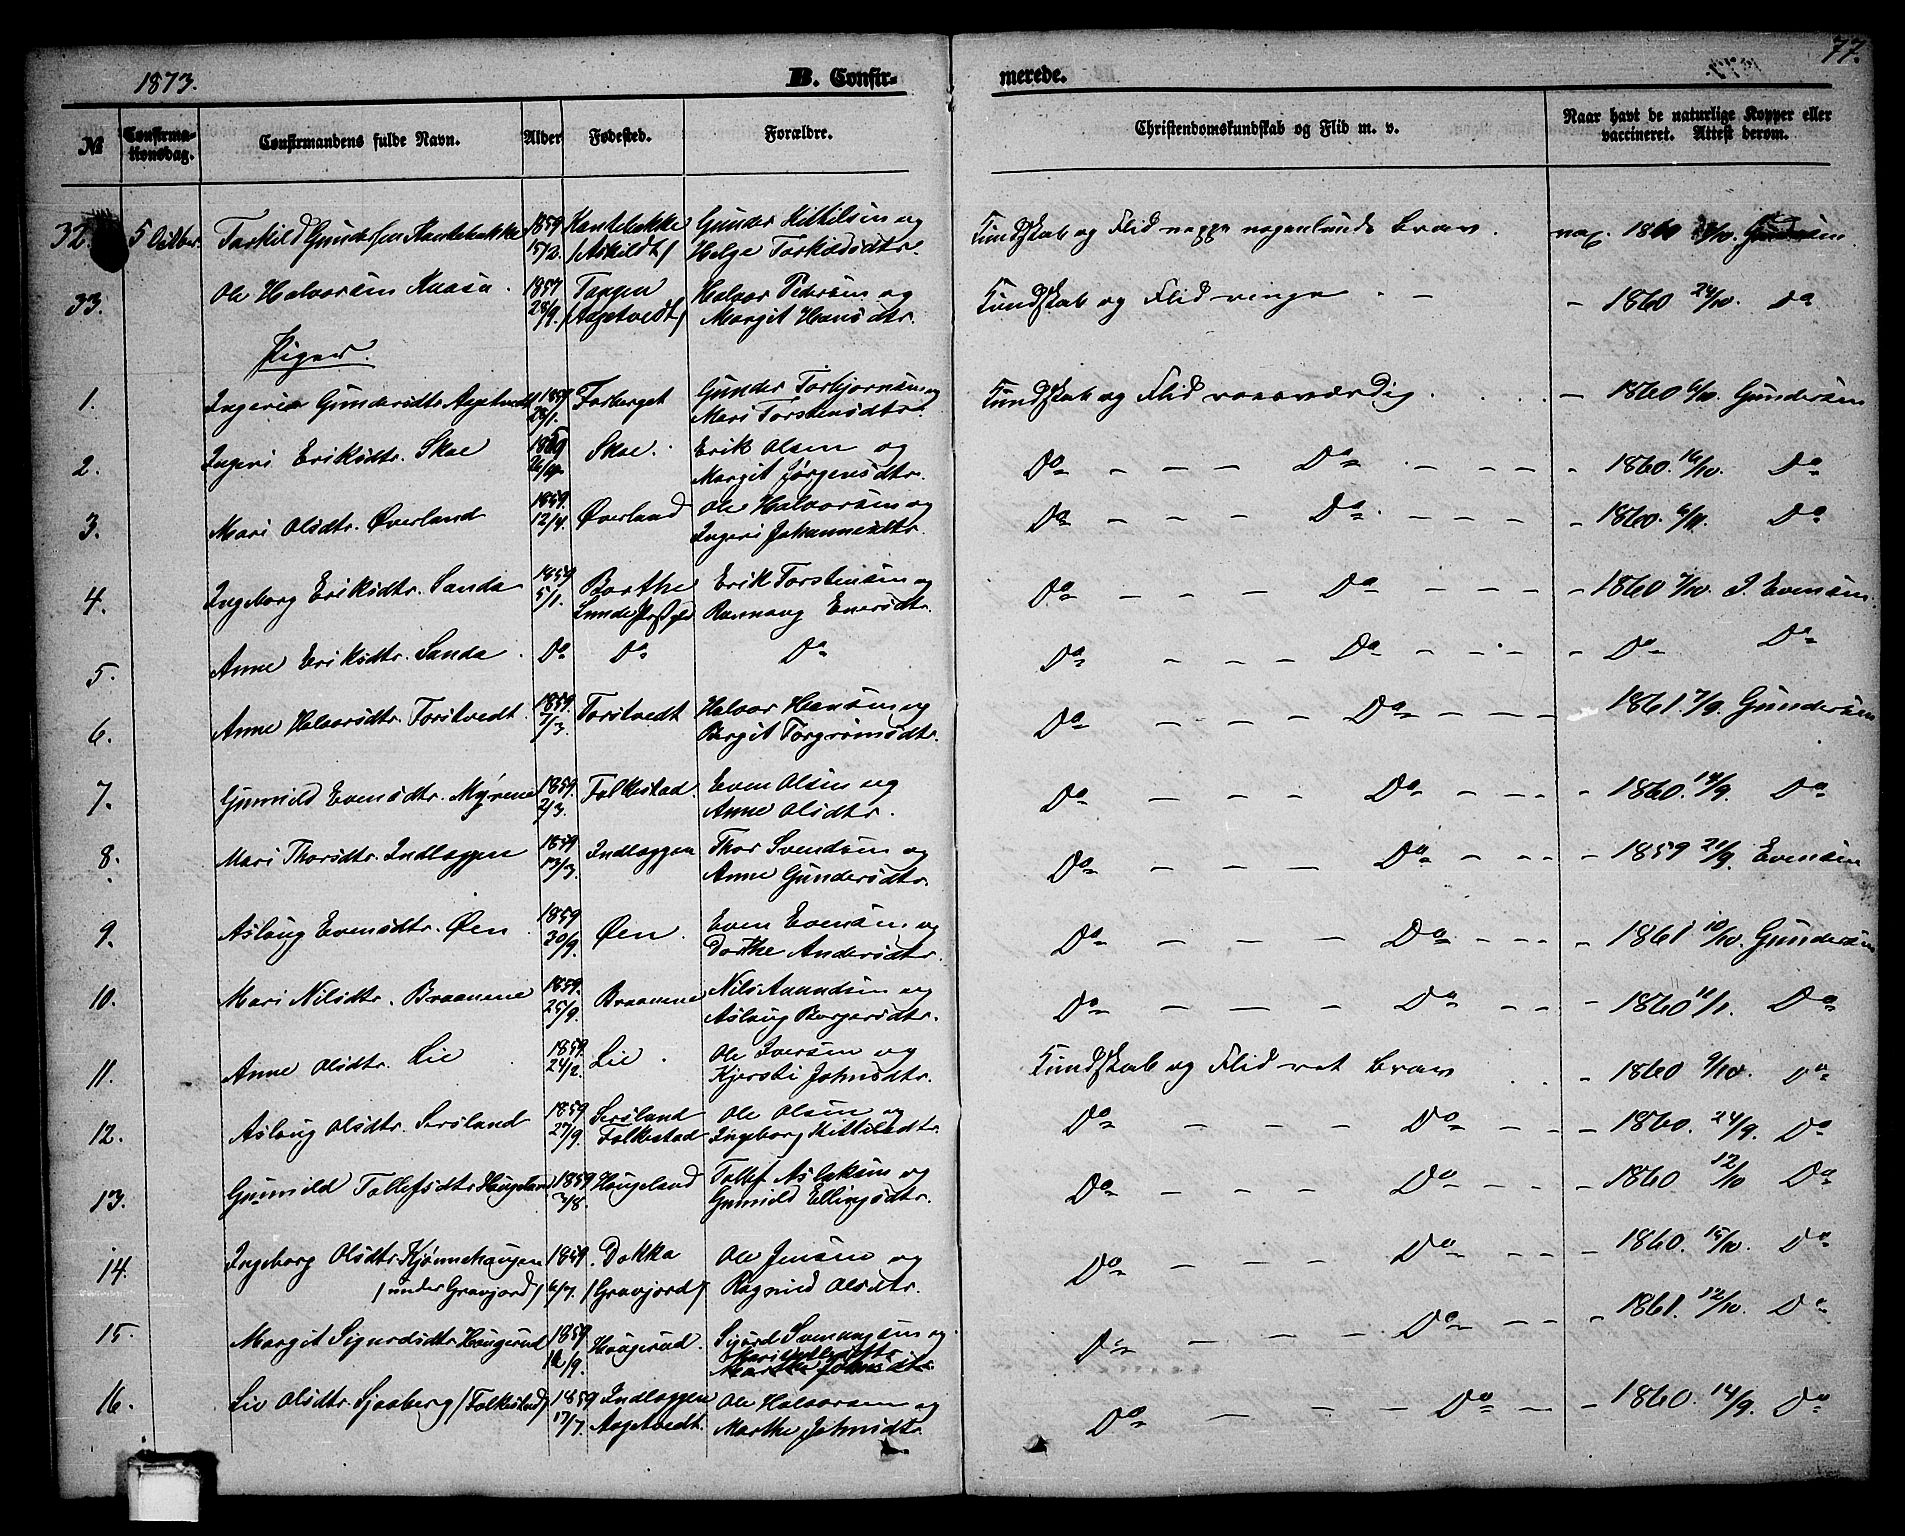 1873.
B. Confir-
merede.
77.
№
Confirma-
tionsdag.
Confirmandens fulde Navn.
Alder
Fødested.
Forældre.
Christendomskundskab og Flid m. v.
Naar havt de naturlige Kopper eller
vaccineret. Attest derom.
32. 5 Octbr. Torkild Gundersen Kantebakke 1859 Kantebakke Gunder Kittilsen og Kundskab og Flid neppe nogenlunde brav. vac. 1860 /10. Gundersen
15/2. /Askildt/ Helge Torkildsdtr.
33. Ole Halvorsen Kaasa. 1857 Tappen Halvor Pedersen og Kundskab og Flid ringe. - - 1860 24/10. Do
28/9. /Aagetvedt/ Margit Hansdtr.
Piger.
1. Ingerid Gundersdtr. Aagetvedt 1859 Forberget Gunder Torbjørnsen og Kundskab og Flid roesværdig. - 1860 6/10. Gundersen
28/1. Mari Torstensdtr.
2. Ingeri Eriksdtr. Skoe 1859 Skoe. Erik Olsen og Do - - - Do - - - 1860. 16/10. Do
Margit Jørgensdtr.
3. Mari Olsdtr. Øverland 1859. Øverland Ole Halvorsen og Do - - - Do - - - 1860. 6/11. Do
12/4. Ingeri Johannesdtr.
4. Ingeborg Eriksdtr. Sanda 1859 Borthe Erik Torstensen og Do - - - Do - - - 1860 /10 J. Evensen.
5/1. Lunde Præstgjd Rannaug Enersdtr.
5. Anne Eriksdtr. Sanda. Do Do Do Do - - - Do - - - Do Do
6. Anne Halvorsdtr. Torstvedt. 1859. Torstvedt Halvor Hansen og Do - - - Do - - - 1861 7/9. Gundersen
7/3. Birgit Torgrimsdtr.
7. Gunnild Evensdtr. Myrene 1859. Folkestad. Even Olsen og Do - - - Do - - - 1860. 14/9. Do
2/3. Anne Olsdtr.
8. Mari Thorsdtr. Indlæggen 1859 Indlæggen Thor Svendsen og Do - - - Do - - - 1859 21/9. Evensen
13/3. Anne Gundersdtr.
9. Aslaug Evensdtr. Øen. 1859 Øen. Even Evensen og Do - - - Do - - - 1861 10/10. Gundersen
30/9. Dorthe Andersdtr.
10. Mari Nilsdtr. Braanene 1859. Braanene Nils Aamundsen og Do - - - Do - - - 1860 11/1. Do
25/9. Aslaug Borgersdtr.
11. Anne Olsdtr. Lie. 1859. Lie. Ole Iversen og Kundskab og Flid ret brav. - 1860 9/10. Do
24/2. Kjersti Johnsdtr.
12. Aslaug Olsdtr. Sersland 1859 Sersland Ole Olsen og Do - - - Do - - - 1860. 24/9. Do
27/9. Folkestad Ingeborg Kittilsdtr.
13. Gunnild Tollefsdtr. Haugeland 1859 Haugeland Tollef Aslaksen og Do - - - Do - - - 1860 12/10 Do
3/8. Gunnild Ellingsdtr.
14. Ingeborg Olsdtr. Kjønnehaugen 1859. Dokka Ole Jensen og Do - - - Do - - - 1860. 15/10. Do
/under Gravjord/ 6/7. /Gravjord/ Ragnild Olsdtr.
15. Margit Sigurdsdtr. Haugerud 1859 Haugerud. Sigurd Svenungsen og Do - - - Do - - - 1861. 12/10. Do
/9. Marthe Johnsdtr.
16. Liv Olsdtr. Sjaaberg /Folkestad/ 1859 Indlæggen Ole Halvorsen og Do - - - Do - - - 1860. 14/9. Do
17/7. Aagetvedt. Marthe Johnsdtr.